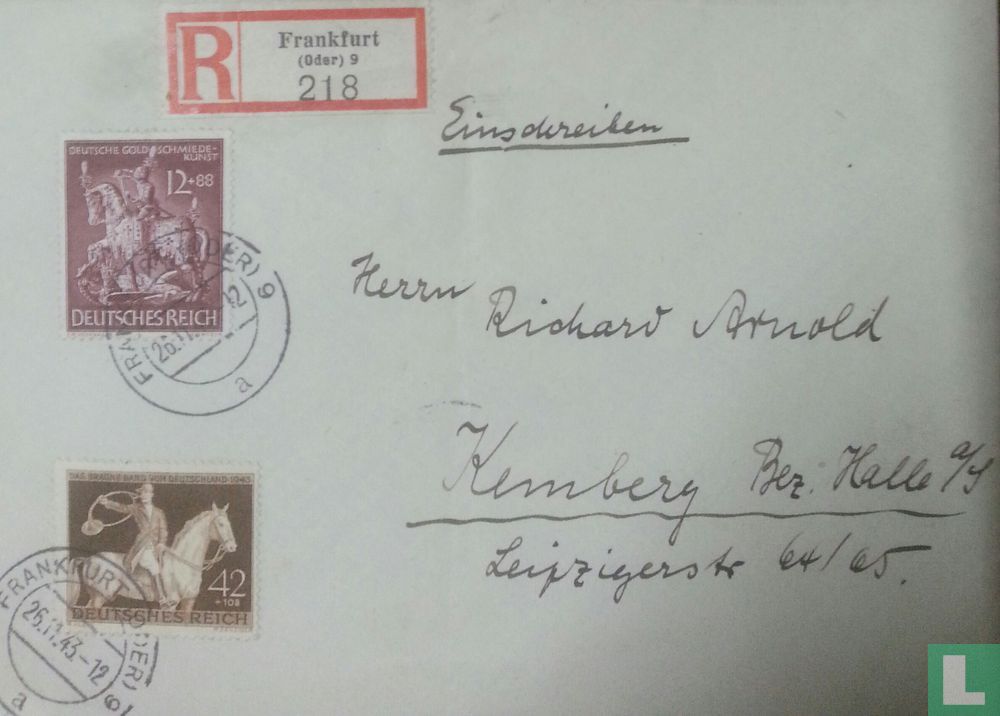 R
Frankfurt
(Oder) 9
218
Einschreiben
DEUTSCHE GOLDSCHMIEDE-
KUNST
12+88
DEUTSCHES REICH
(ODER) 9
a
Herrn
Richard Arnold
Kemberg Bez. Halle a/S
Leipzigerstr 64/65.
DAS BRAUNE BAND VON DEUTSCHLAND 1943
42
+108
DEUTSCHES REICH
FRANKFURT (ODER) 9
26.11.43.-12
a
L